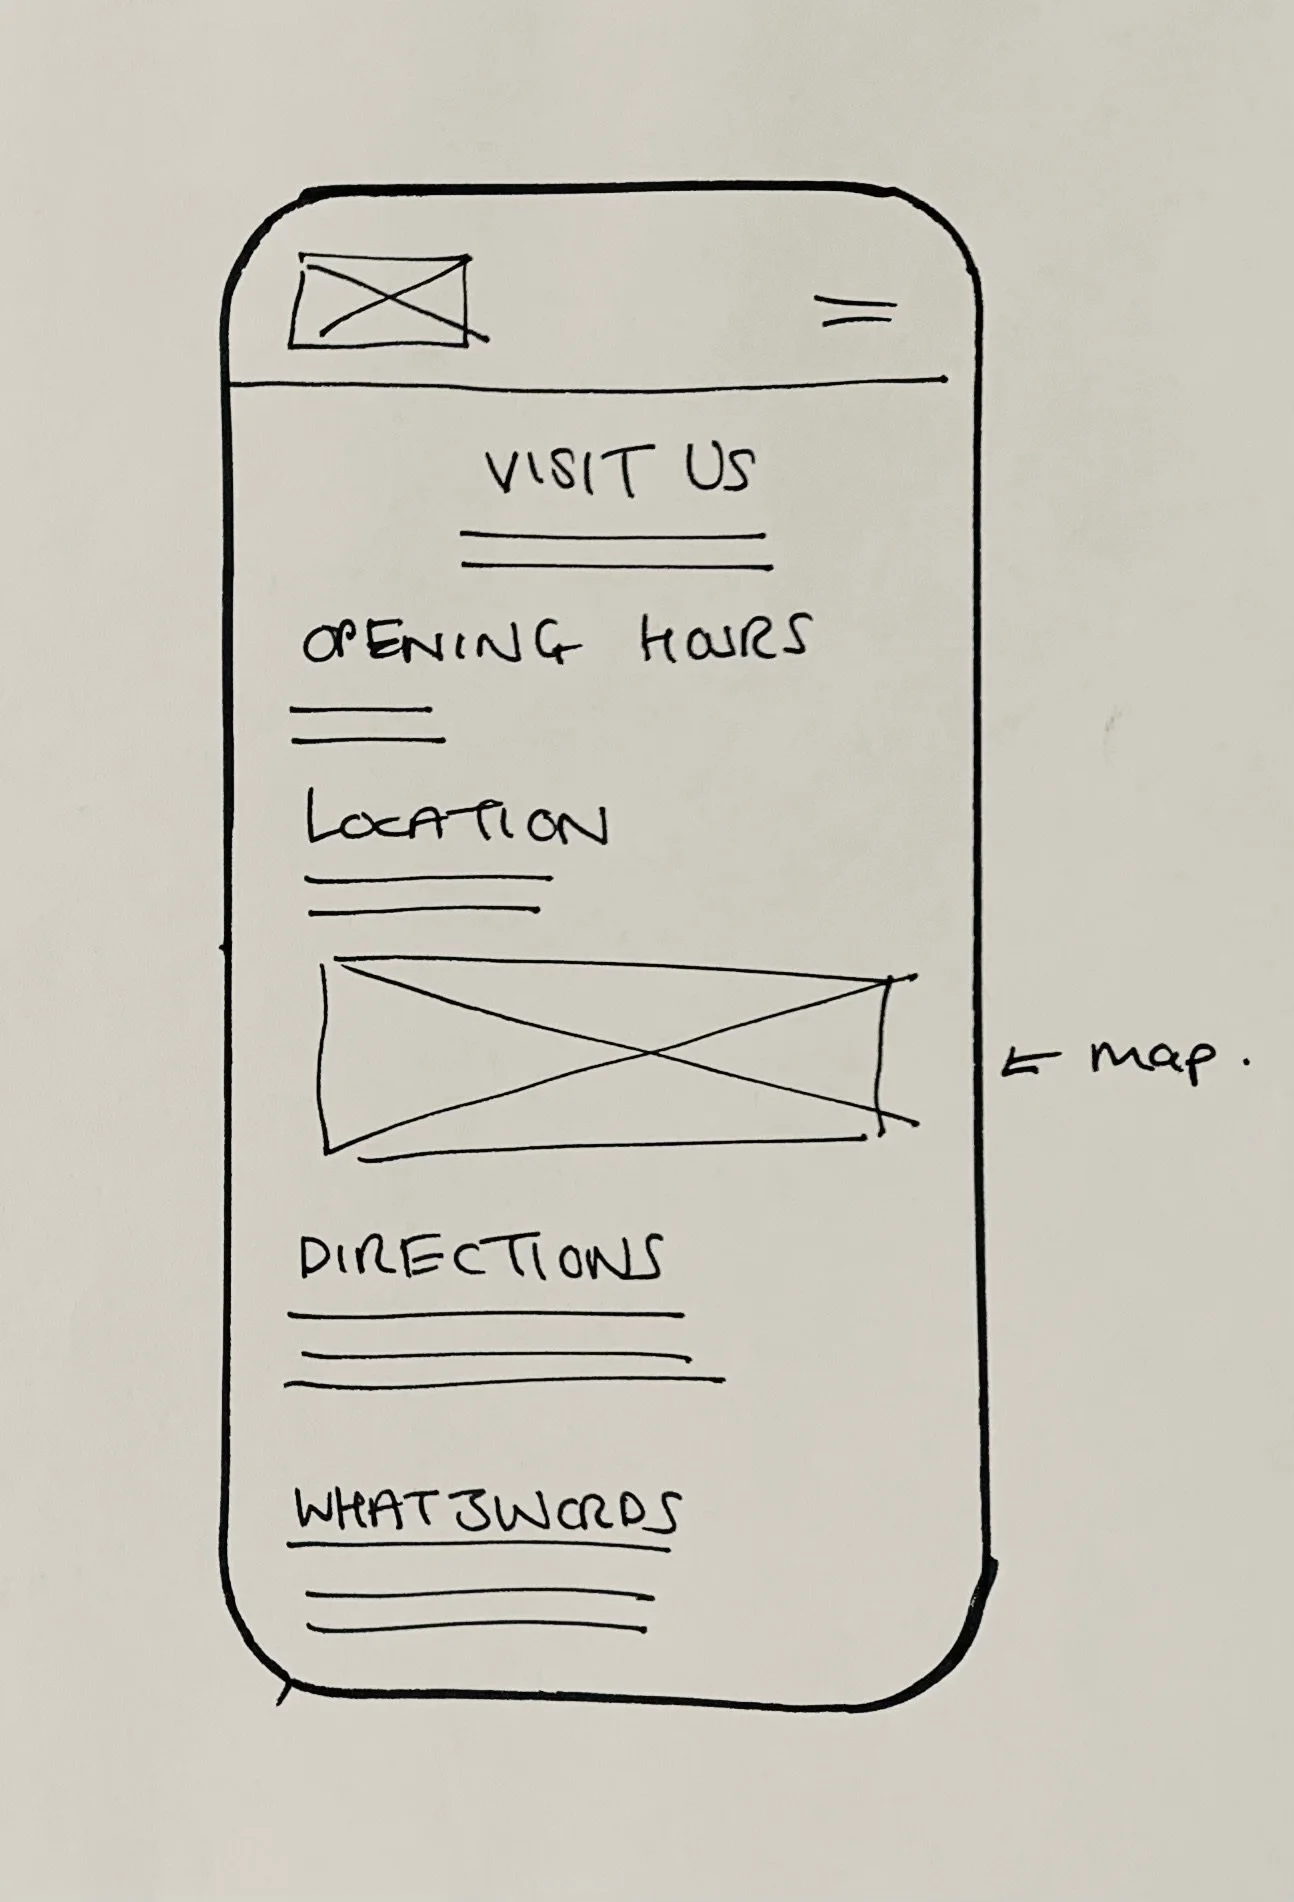 VISIT US
OPENING HOURS
LOCATION
← map.
DIRECTIONS
WHAT3WORDS